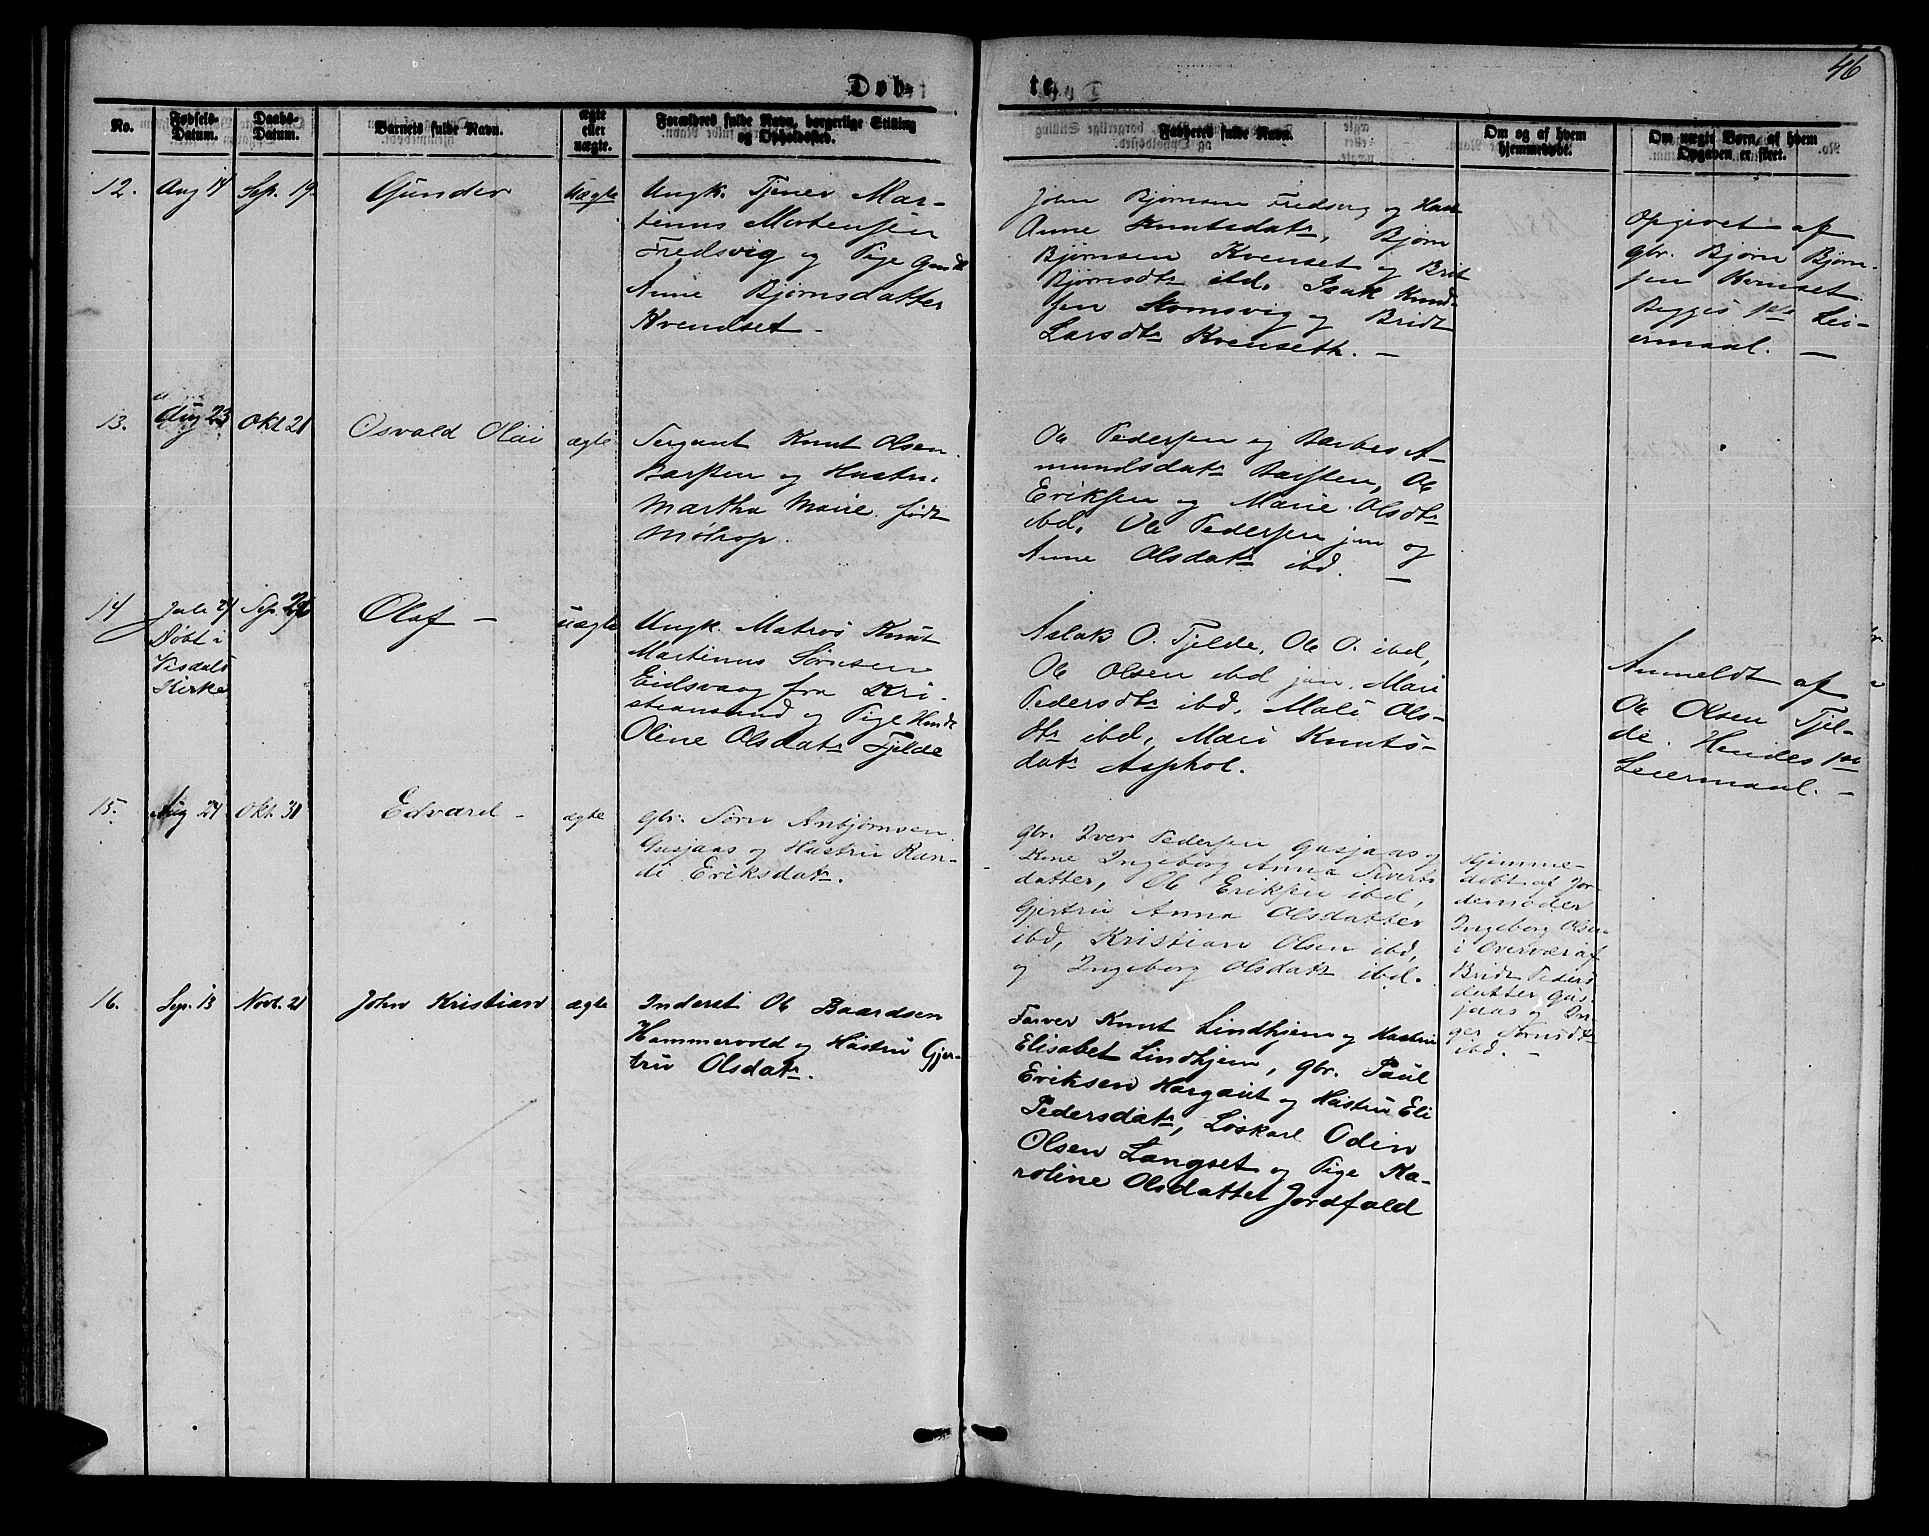 46
Døb-
te.
No.
Fødsels-
Datum.
Daabs-
Datum.
Barnets fulde Navn.
ægte
eller
uægte.
Forældres fulde Navn, borgerlige Stilling
og Opholdssted.
Faddernes fulde Navn.
Om og af hvem
hjemmedøbt.
Om uægte Børn, af hvem
Opgaven er skeet.
12.
Aug 14
Sep. 19
Gunder
Uægte
Ungk. Tjener Mar-
tinus Mortensen
Fredsvig og Pige
Anne Bjørnsdatter
Kvendset -
John Bjørnsen Fredsvig og
Anne Knutsdatr, Bjørn
Bjørnsen Kvenset og Brit
Bjørnsdtr ibd. Isak Knud-
sen Stomsvig og Bridt
Larsdtr Kvenseth. -
Opgivet af
gbr. Bjørn Bjørn-
sen Kvenset
Begges 1ste Lei-
ermaal. -
13.
Aug 23
Okt 21
Osvald Olai
ægte
Sergant Knut Olsen
Barsten og Hustru
Martha Marie født
Møtrop.
Ole Pedersen og Barbro A-
mundsdatr Barsten, Ole
Eriksen og Marie Olsdtr
ibd. Ole Pedersen jun og
Anne Olsdatr ibd. -
14
Juli 24
Døbt i
Visdals
Kirke
Sep.
Olaf -
uægte
Ungk. Matros Knut
Martinus Sørnsen
Eidsvaag fra Kri-
stiansund og Pige
Oline Olsdatr Fjelde
Aslak O. Tjelde, Ole O. ibd,
Ole Olsen ibd jun. Mari
Pedersdtr ibd, Mali Ols-
dtr ibd, Mari Knuts-
datr Asphol.
Anmeldt af
Ole Olsen Tjel-
de. Hendes 1ste
Leiermaal. -
15.
Aug 24
Okt. 31
Edvard -
ægte
gbr. Sørn Anbjørnsen
Gusjaas og Hustru Ran-
di Eriksdatr.
gbr. Iver Pedersen Gusjaas og
Kone Ingeborg Anna Siverts
datter, Ole Eriksen ibd,
Gjertru Anna Olsdatter
ibd, Kristian Olsen ibd,
og Ingeborg Olsdatr ibd.
Hjemme-
døbt af Jor-
demoder
Ingeborg Olsen
i Overvær af
Bridt Peders
datter Gus-
jaas og In-
ger Sørnsdtr
ibd. -
16.
Sep. 13
Novb. 21
John Kristian
ægte
Inderst Ole Baardsen
Hammervold og Hustru Gjer-
tru Olsdatr.
Farver Knut Lindhjem og Hustru
Elisabet Lindhjem, gbr. Paul
Eriksen Hargaut og Hustru Eli
Pedersdatr, Løskarl Odin
Olsen Langset og Pige Ka-
roline Olsdatter Jordfald